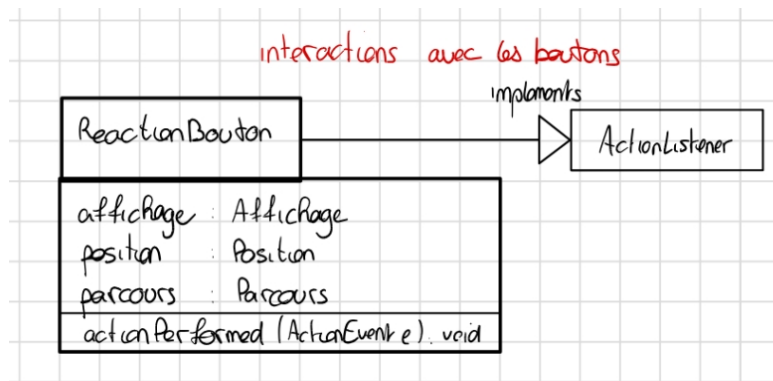 interactions avec les boutons
implements
ReactionBouton
ActionListener
affichage : Affichage
position : Position
parcours : Parcours
actionPerformed (ActionEvent e) : void